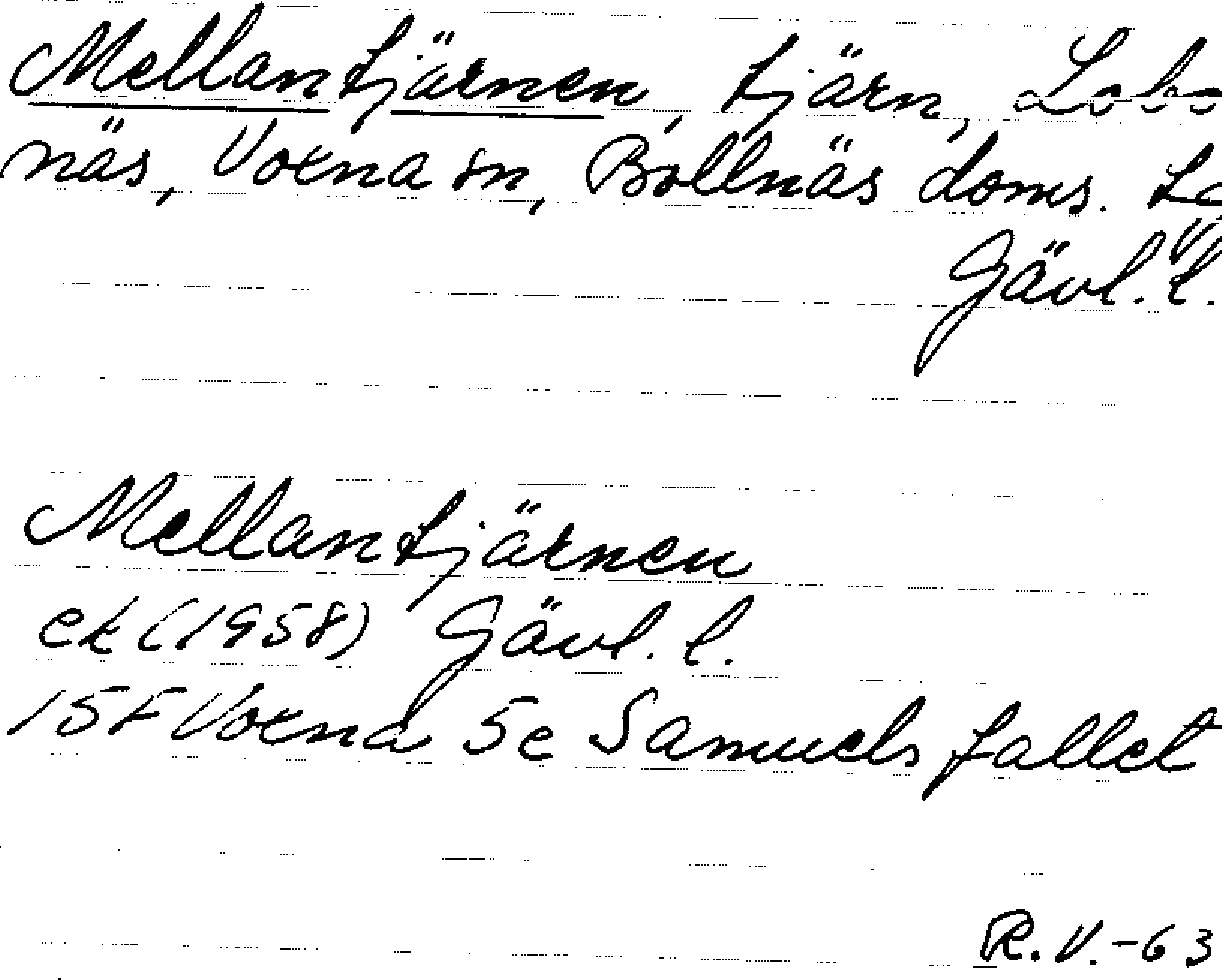 Mellantjärnen, tjärn, Lobo
näs, Voxna sn, Bollnäs doms.
Gävl. l.
Mellantjärnen
ek (1958) Gävl. l.
15F Voxna 5e Samuelsfallet
R.V.-63